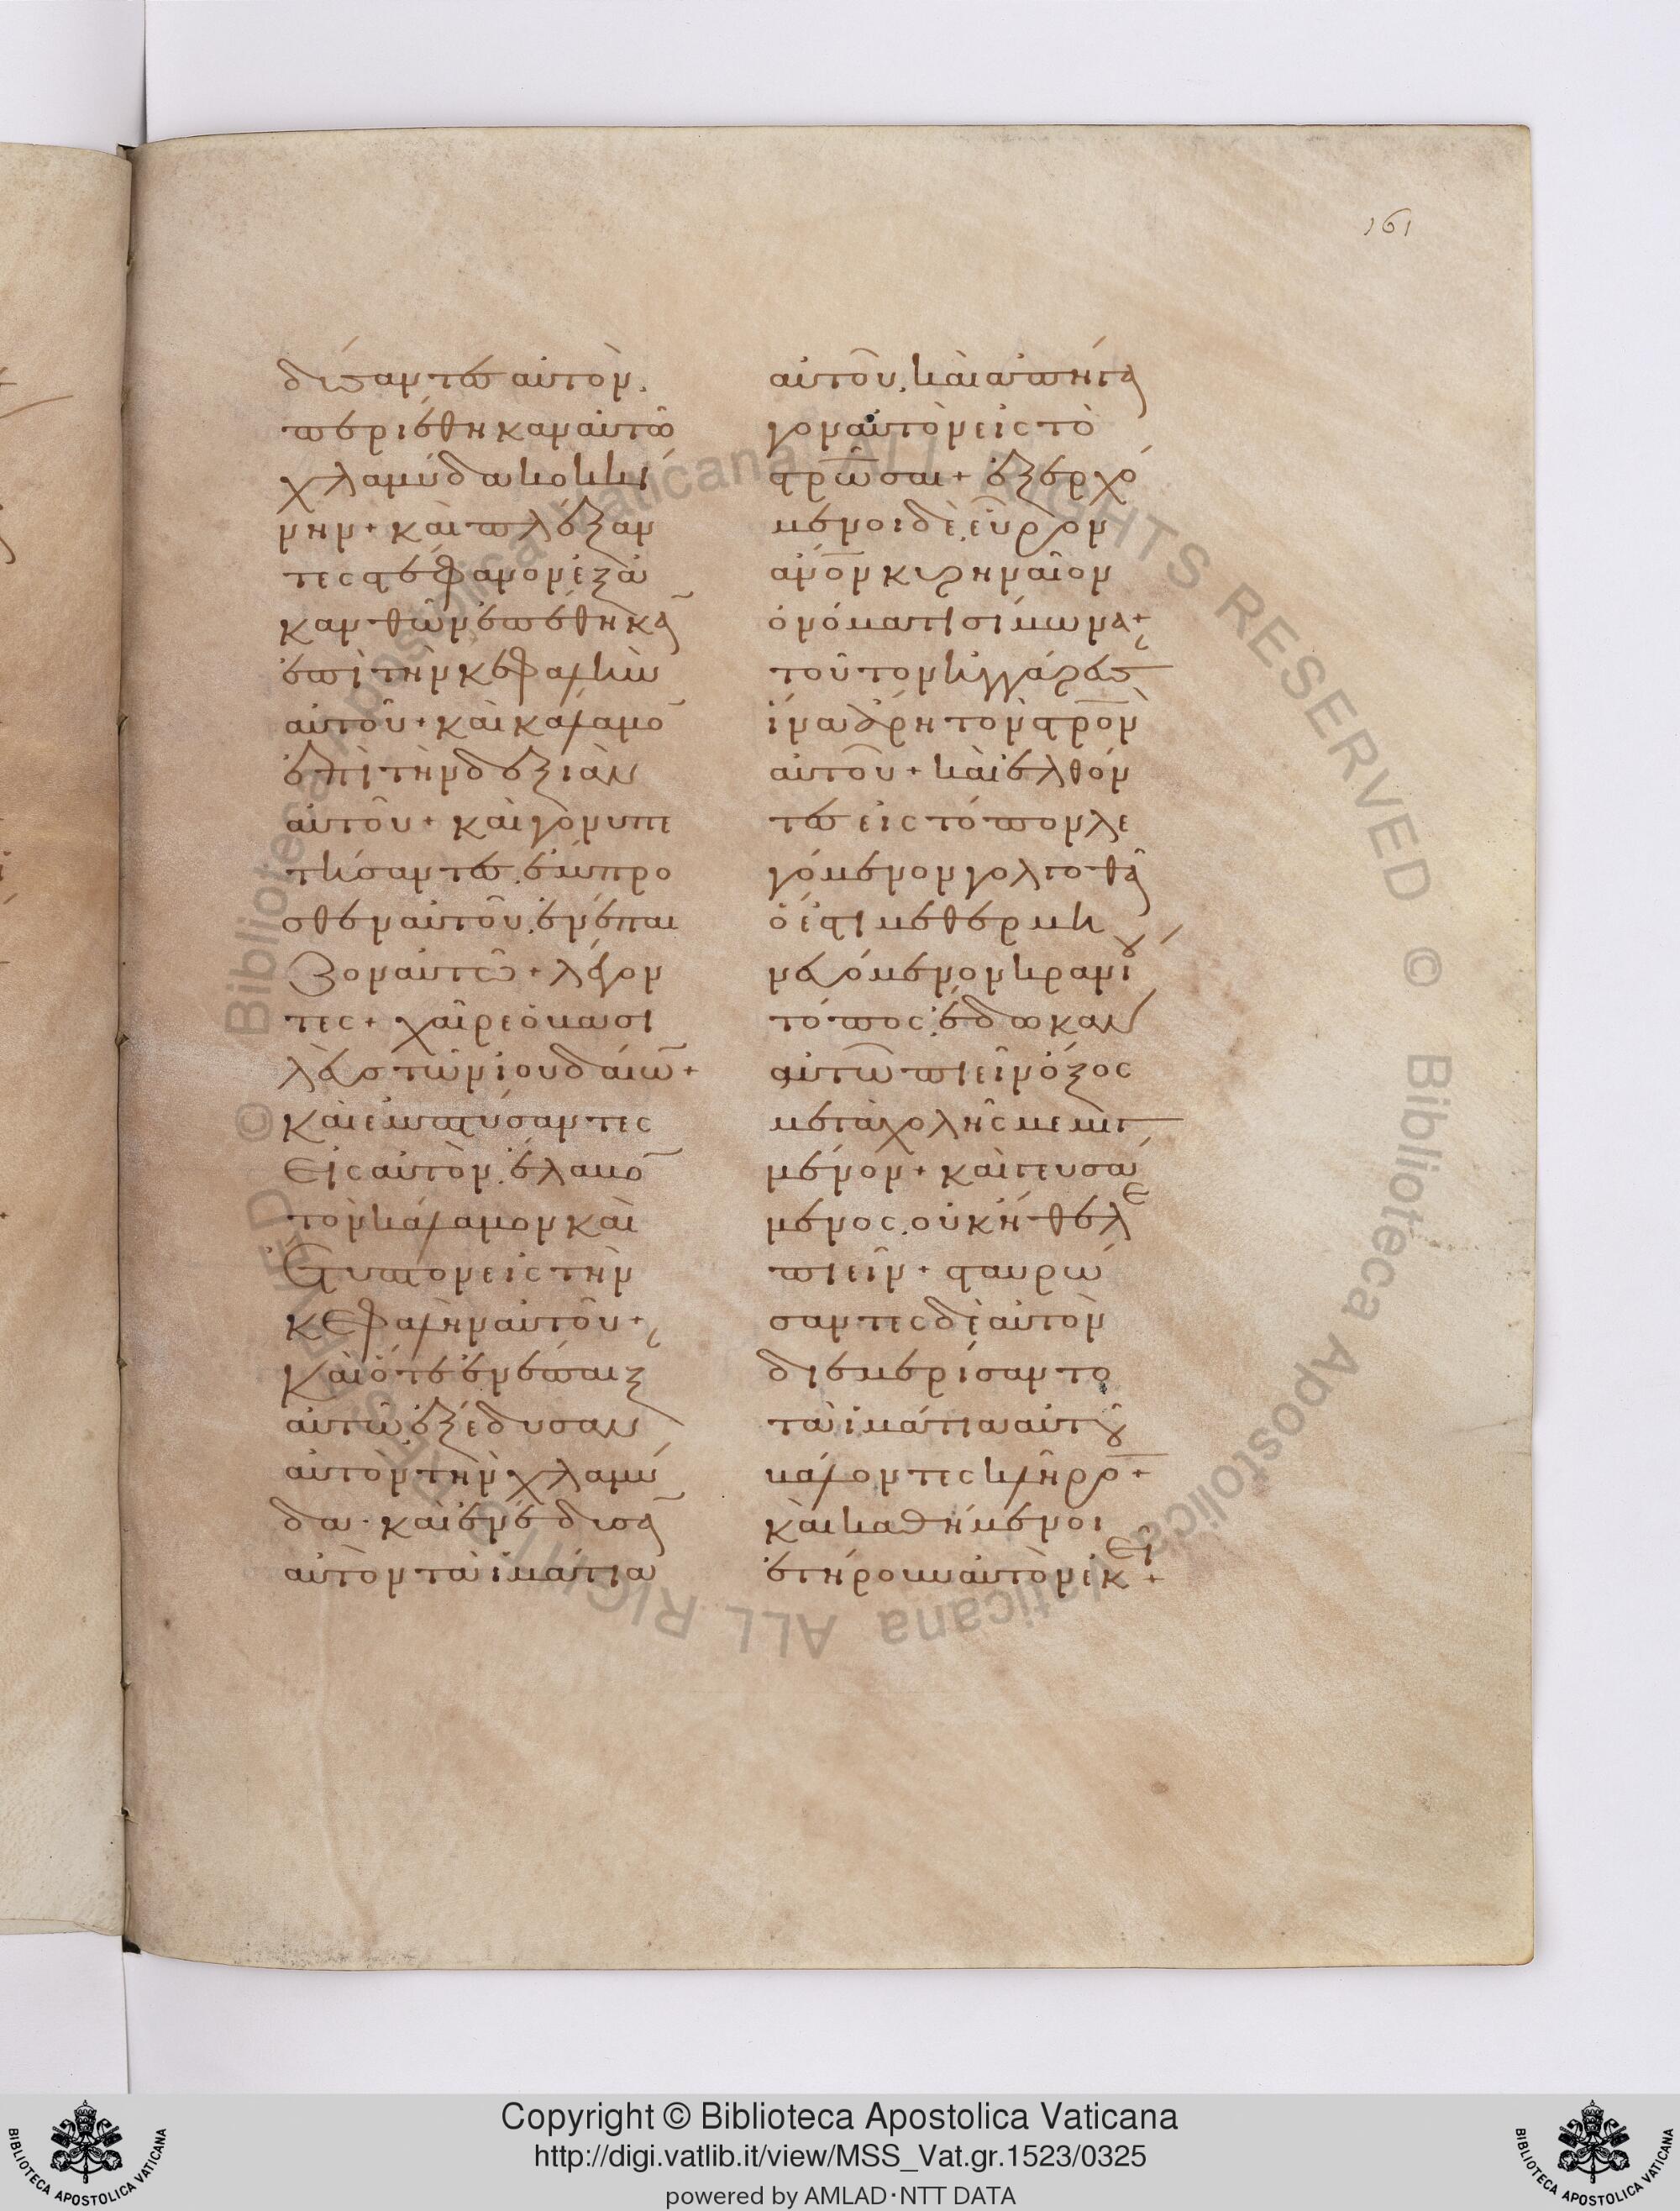 161
δύσαντες αὐτὸν.
περιέθηκαν αὐτῶ
χλαμύδα κοκκί
νην + καὶ πλέξαν
τες στέφανον ἐξ ἀ
κανθῶν ἐπέθηκα̅
ἐπὶ τὴν κεφαλὴν
αὐτοῦ + καὶ κάλαμο̅
ἐπὶ τὴν δεξιὰν
αὐτοῦ + καὶ γονυπε
τήσαντες. ἔμπρο
σθεν αὐτοῦ. ἐνέπαι
ζον αὐτῶ + λέγον
τες + χαῖρε ὁ βασι
λεὺς τῶν ἰουδαίω̅ +
καὶ ἐμπτύσαντες
εἰς αὐτὸν. ἔλαβο̅
τὸν κάλαμον καὶ
ἔτυπτον εἰς τὴν
κεφαλὴν αὐτοῦ +
καὶ ὅτε ἐνέπαιξ
αὐτῶ. ἐξέδυσαν
αὐτὸν τὴν χλαμύ
δα. καὶ ἐνέδυσα̅
αὐτὸν τὰ ἱμάτια
αὐτοῦ. καὶ ἀπήγα
γον αὐτὸν εἰς τὸ
στρῶσαι + ἐξερχό
μενοι δὲ. εὗρον
ἄνον κυρηναῖον
ὀνόματι σίμωνα +
τοῦτον ἠγγάρευς
ἵνα ἄρη τὸν στρὸν
αὐτοῦ + καὶ ἐλθόν
τες εἰς τόπον λε
γόμενον γολγοθᾶ
ὅ ἐστι μεθερμη
νευόμενον κρανίου
τόπος. ἔδωκαν
αὐτῶ πιεῖν ὄξος
μετὰ χολῆς μεμιγ
μένον + καὶ γευσά
μενος. οὐκ ἤθελε
πιεῖν + σταυρώ
σαντες δὲ αὐτὸν
διεμερίσαντο
τὰ ἱμάτια αὐτοῦ
βάλοντες κλῆρο̅ +
καὶ καθήμενοι
ἐτήρουν αὐτὸν ἐκεῖ +
Copyright © Biblioteca Apostolica Vaticana
http://digi.vatlib.it/view/MSS_Vat.gr.1523/0325
powered by AMLAD·NTT DATA
BIBLIOTECA APOSTOLICA VATICANA
BIBLIOTECA APOSTOLICA VATICANA